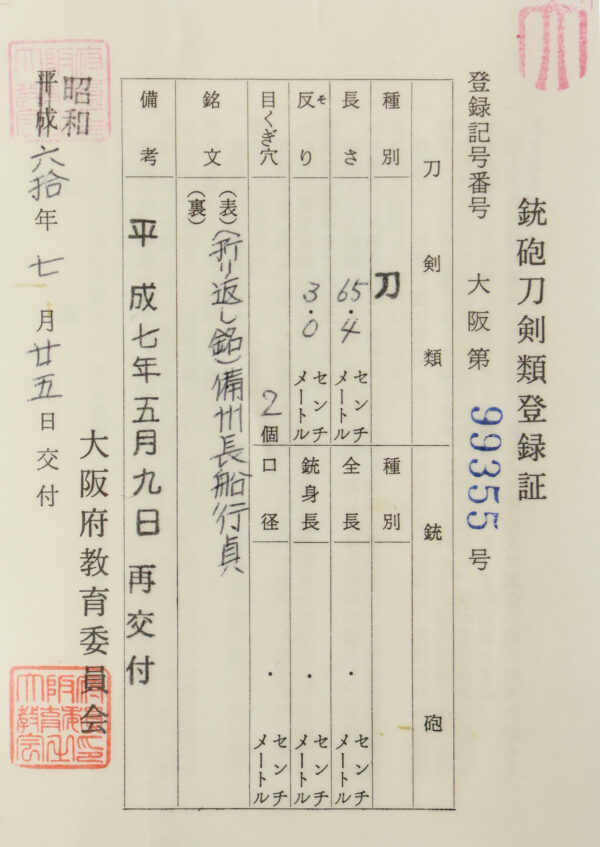 銃砲刀剣類登録証
登録記号番号 大阪第 99355 号
刀剣類 銃砲
種別 刀 種別
長さ 65.4 センチメートル 全長 ・ センチメートル
反り そ 3.0 センチメートル 銃身長 ・ センチメートル
目くぎ穴 2個 口径 ・ センチメートル
銘文 (表)(折り返し銘)備州長船行貞
(裏)
備考 平成七年五月九日 再交付
大阪府教育委員会
昭和
平成六拾年七月廿五日交付